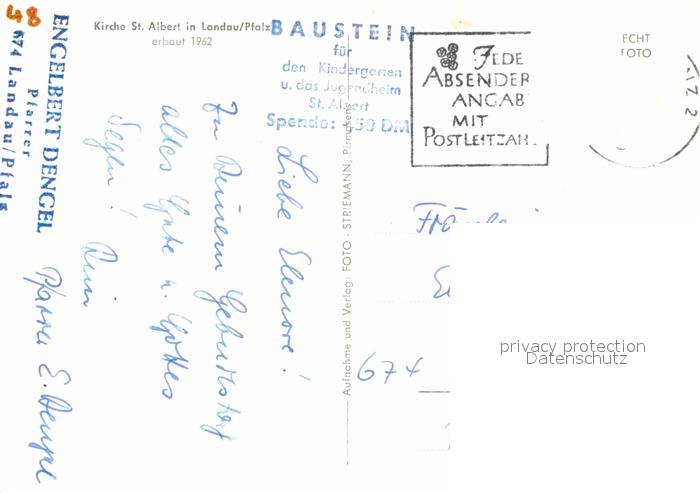 48
ENGELBERT DENGEL
Pfarrer
674 Landau/Pfalz
Kirche St. Albert in Landau/Pfalz
erbaut 1962
BAUSTEIN
für
den Kindergarten
u. das Jugendheim
St. Albert
Spende: 1,50 DM
JEDE
ABSENDER
ANGAB
MIT
POSTLEITZAH
ECHT
FOTO
Liebe Elenore!
Zu Deinem Geburtstag
alles Gute u. Gottes
Segen! Dein
Pfarrer E. Dengel
Aufnahme und Verlag: FOTO - STRIEMANN, Pirmasens
Fräulein
El
674
privacy protection
Datenschutz